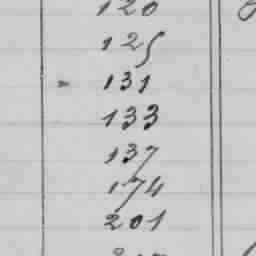 120
125
131
133
137
174
201